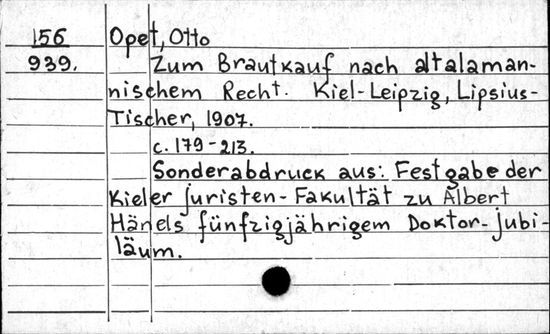 156 Opet, Otto
939. Zum Brautkauf nach altalaman-
nischem Recht. Kiel-Leipzig, Lipsius-
Tischer, 1907.
c. 179-213.
Sonderabdruck aus: Festgabe der
Kieler juristen-Fakultät zu Albert
Hänels fünfzigjährigem Doktor-jubi-
läum.